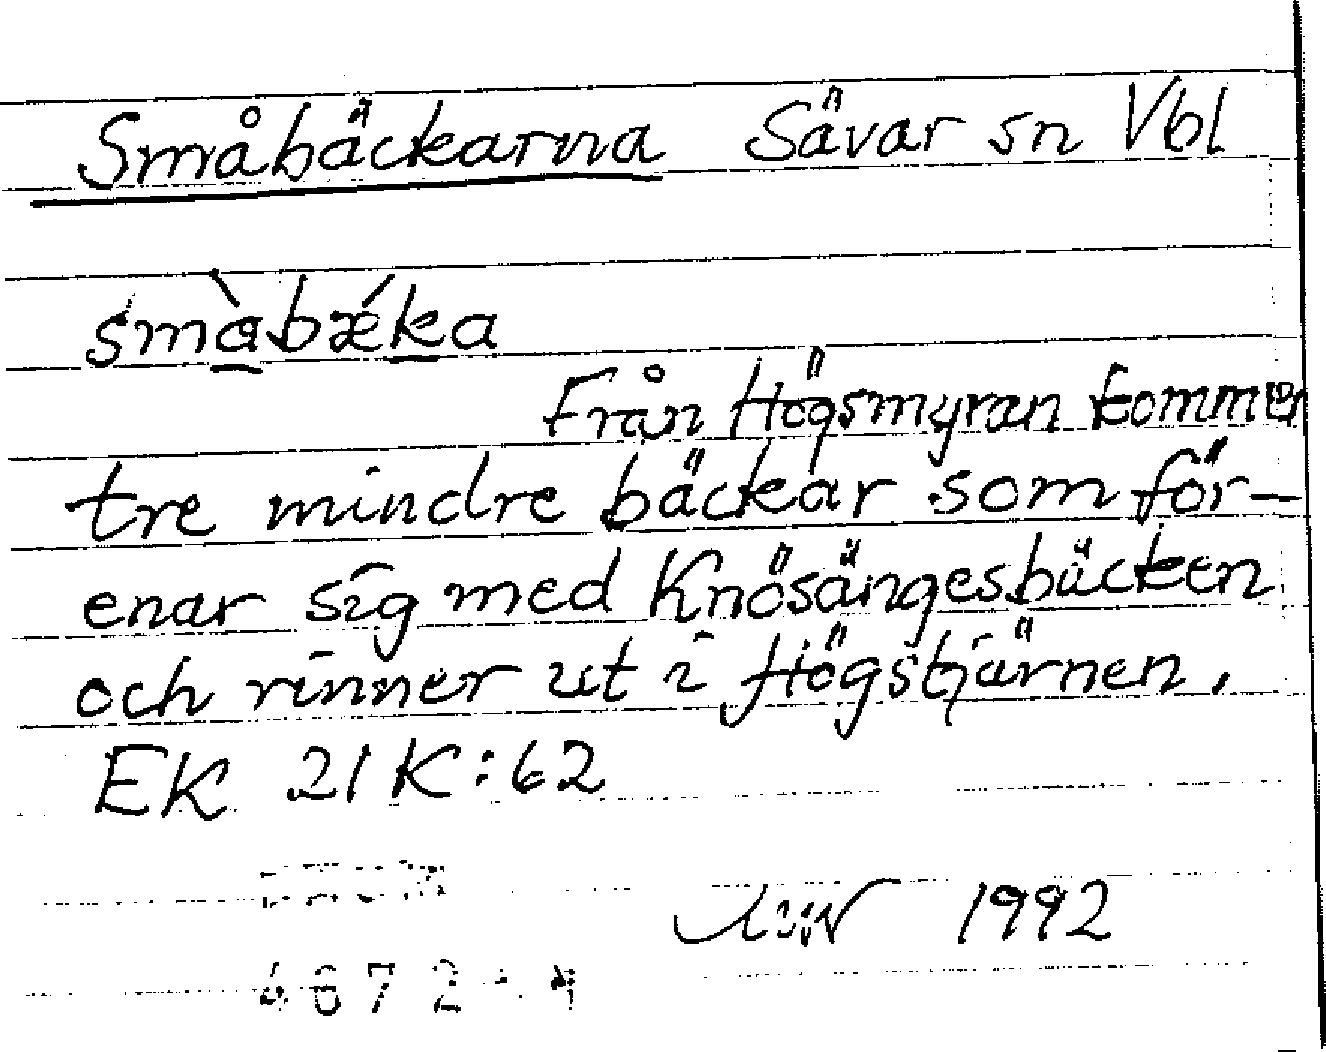 Småbäckarna Sävar sn Vbl
smàbǽka
Från Högsmyran kommer
tre mindre bäckar som för-
enar sig med Knösängesbäcken
och rinner ut i Högstjärnen.
EK 21K:62
1992
4672